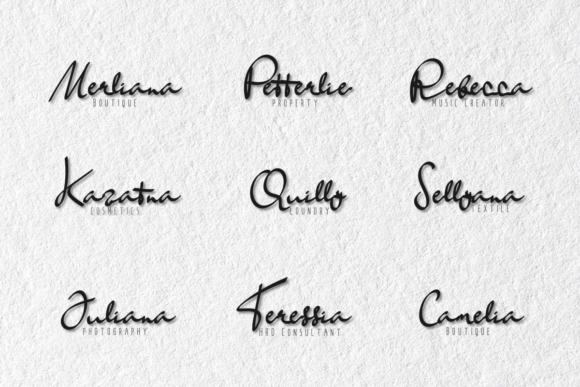 Merliana
BOUTIQUE
Petterlie
PROPERTY
Rebecca
MUSIC CREATOR
Kazatna
COSMETICS
Quilly
LOUNDRY
Sellyana
TEXTILE
Juliana
PHOTOGRAPHY
Teressia
HRD CONSULTANT
Camelia
BOUTIQUE